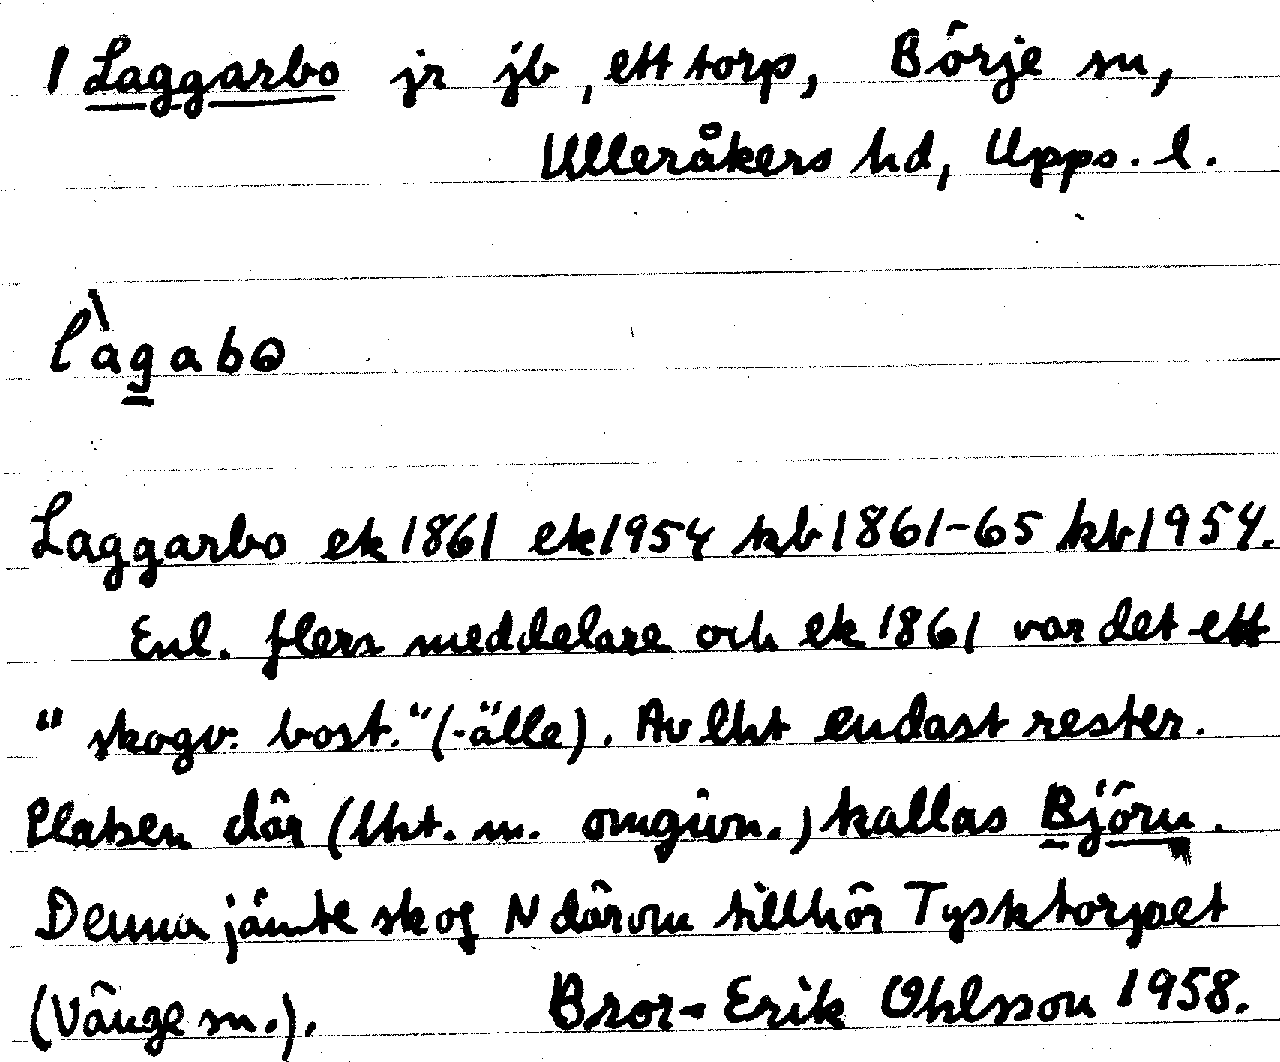 1 Laggarbo jr jb, ett torp, Börje sn,
Ulleråkers hd, Upps. l.
l`agabo
Laggarbo ek 1861 ek 1954 kb 1861-65 kb 1954.
Enl. flera meddelare och ek 1861 var det ett
"skogv. bost." (-älle). Av lht endast rester.
Platsen där (lht. m. omgivn.) kallas Björn.
Denna jämte skog N därom tillhör Tysktorpet
(Vänge sn.). Bror-Erik Ohlsson 1958.